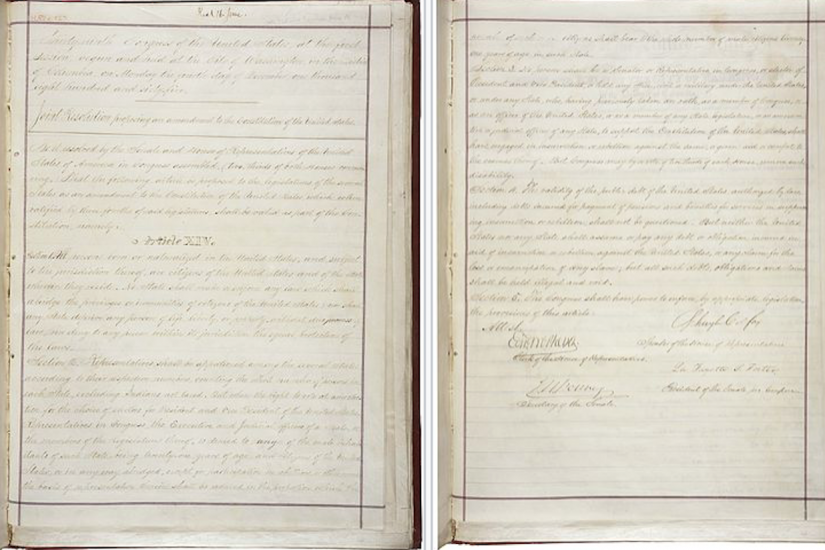 Thirty-ninth Congress of the United States, at the first
session, begun and held at the City of Washington, in the District
of Columbia, on Monday the fourth day of December one thousand
eight hundred and sixty-five.
Joint Resolution proposing an amendment to the Constitution of the United States.
Be it resolved by the Senate and House of Representatives of the United
States of America in Congress assembled, (two thirds of both Houses concur-
ring,) That the following article be proposed to the legislatures of the several
States as an amendment to the Constitution of the United States, which when
ratified by three fourths of said legislatures, shall be valid as part of the Con-
stitution, namely:
Article XIV.
Section 1. All persons born or naturalized in the United States, and subject
to the jurisdiction thereof, are citizens of the United States and of the State
wherein they reside. No State shall make or enforce any law which shall
abridge the privileges or immunities of citizens of the United States; nor shall
any State deprive any person of life, liberty, or property, without due process of
law; nor deny to any person within its jurisdiction the equal protection of
the laws.
Section 2. Representatives shall be apportioned among the several States
according to their respective numbers, counting the whole number of persons in
each State, excluding Indians not taxed. But when the right to vote at any elec-
tion for the choice of electors for President and Vice President of the United States,
Representatives in Congress, the Executive and Judicial officers of a State, or
the members of the legislature thereof, is denied to any of the male inhabi-
tants of such State, being twenty-one years of age, and citizens of the United
States, or in any way abridged, except for participation in rebellion, or other
the basis of representation therein shall be reduced in the proportion which the
number of such male citizens shall bear to the whole number of male citizens twenty-
one years of age in such State.
Section 3. No person shall be a Senator or Representative in Congress, or elector of
President and Vice President, or hold any office, civil or military, under the United States,
or under any State, who, having previously taken an oath, as a member of Congress, or
as an officer of the United States, or as a member of any State legislature, or as an execu-
tive or judicial officer of any State, to support the Constitution of the United States, shall
have engaged in insurrection or rebellion against the same, or given aid or comfort to
the enemies thereof. But Congress may by a vote of two thirds of each House, remove such
disability.
Section 4. The validity of the public debt of the United States, authorized by law,
including debts incurred for payment of pensions and bounties for services in suppress-
ing insurrection or rebellion, shall not be questioned. But neither the United
States nor any State shall assume or pay any debt or obligation incurred in
aid of insurrection or rebellion against the United States, or any claim for the
loss or emancipation of any slave; but all such debts, obligations and claims
shall be held illegal and void.
Section 5. The Congress shall have power to enforce, by appropriate legislation,
the provisions of this article.
Attest.
Schuyler Colfax
Edwd McPherson
Speaker of the House of Representatives.
Clerk of the House of Representatives.
La Fayette S. Foster
J. W. Forney
President of the Senate, pro tempore
Secretary of the Senate.